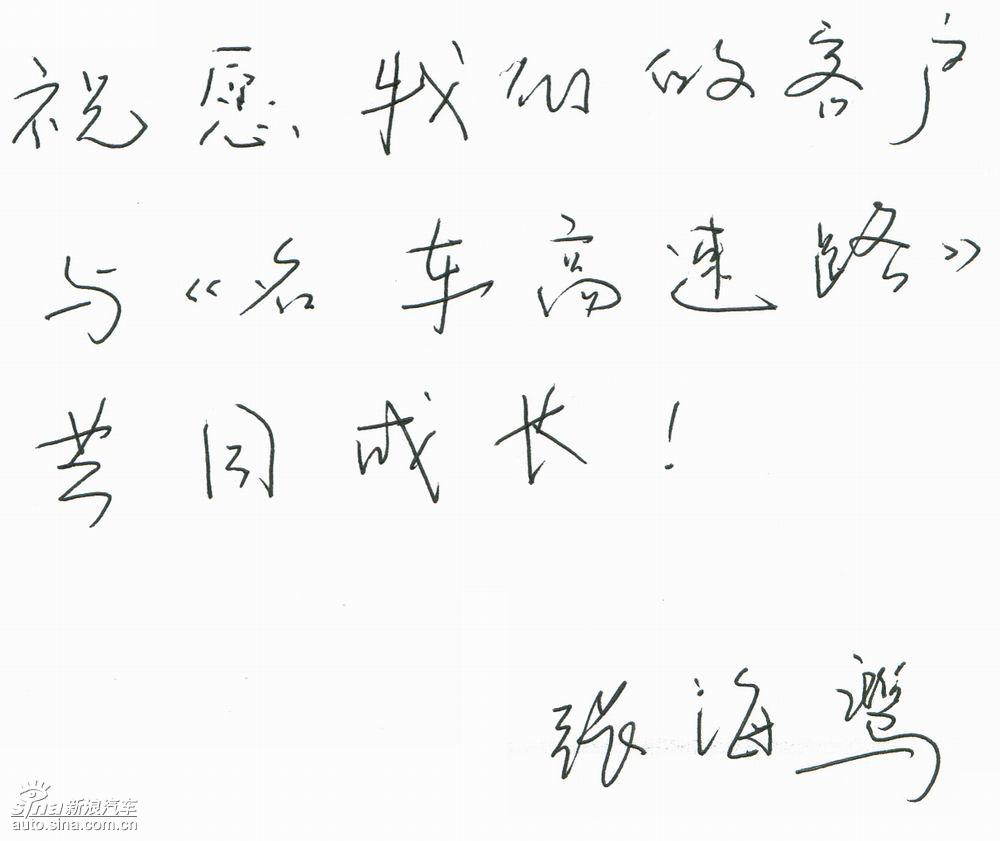 祝愿我们的客户
与《名车高速路》
共同成长!
张海
sina新浪汽车
auto.sina.com.cn